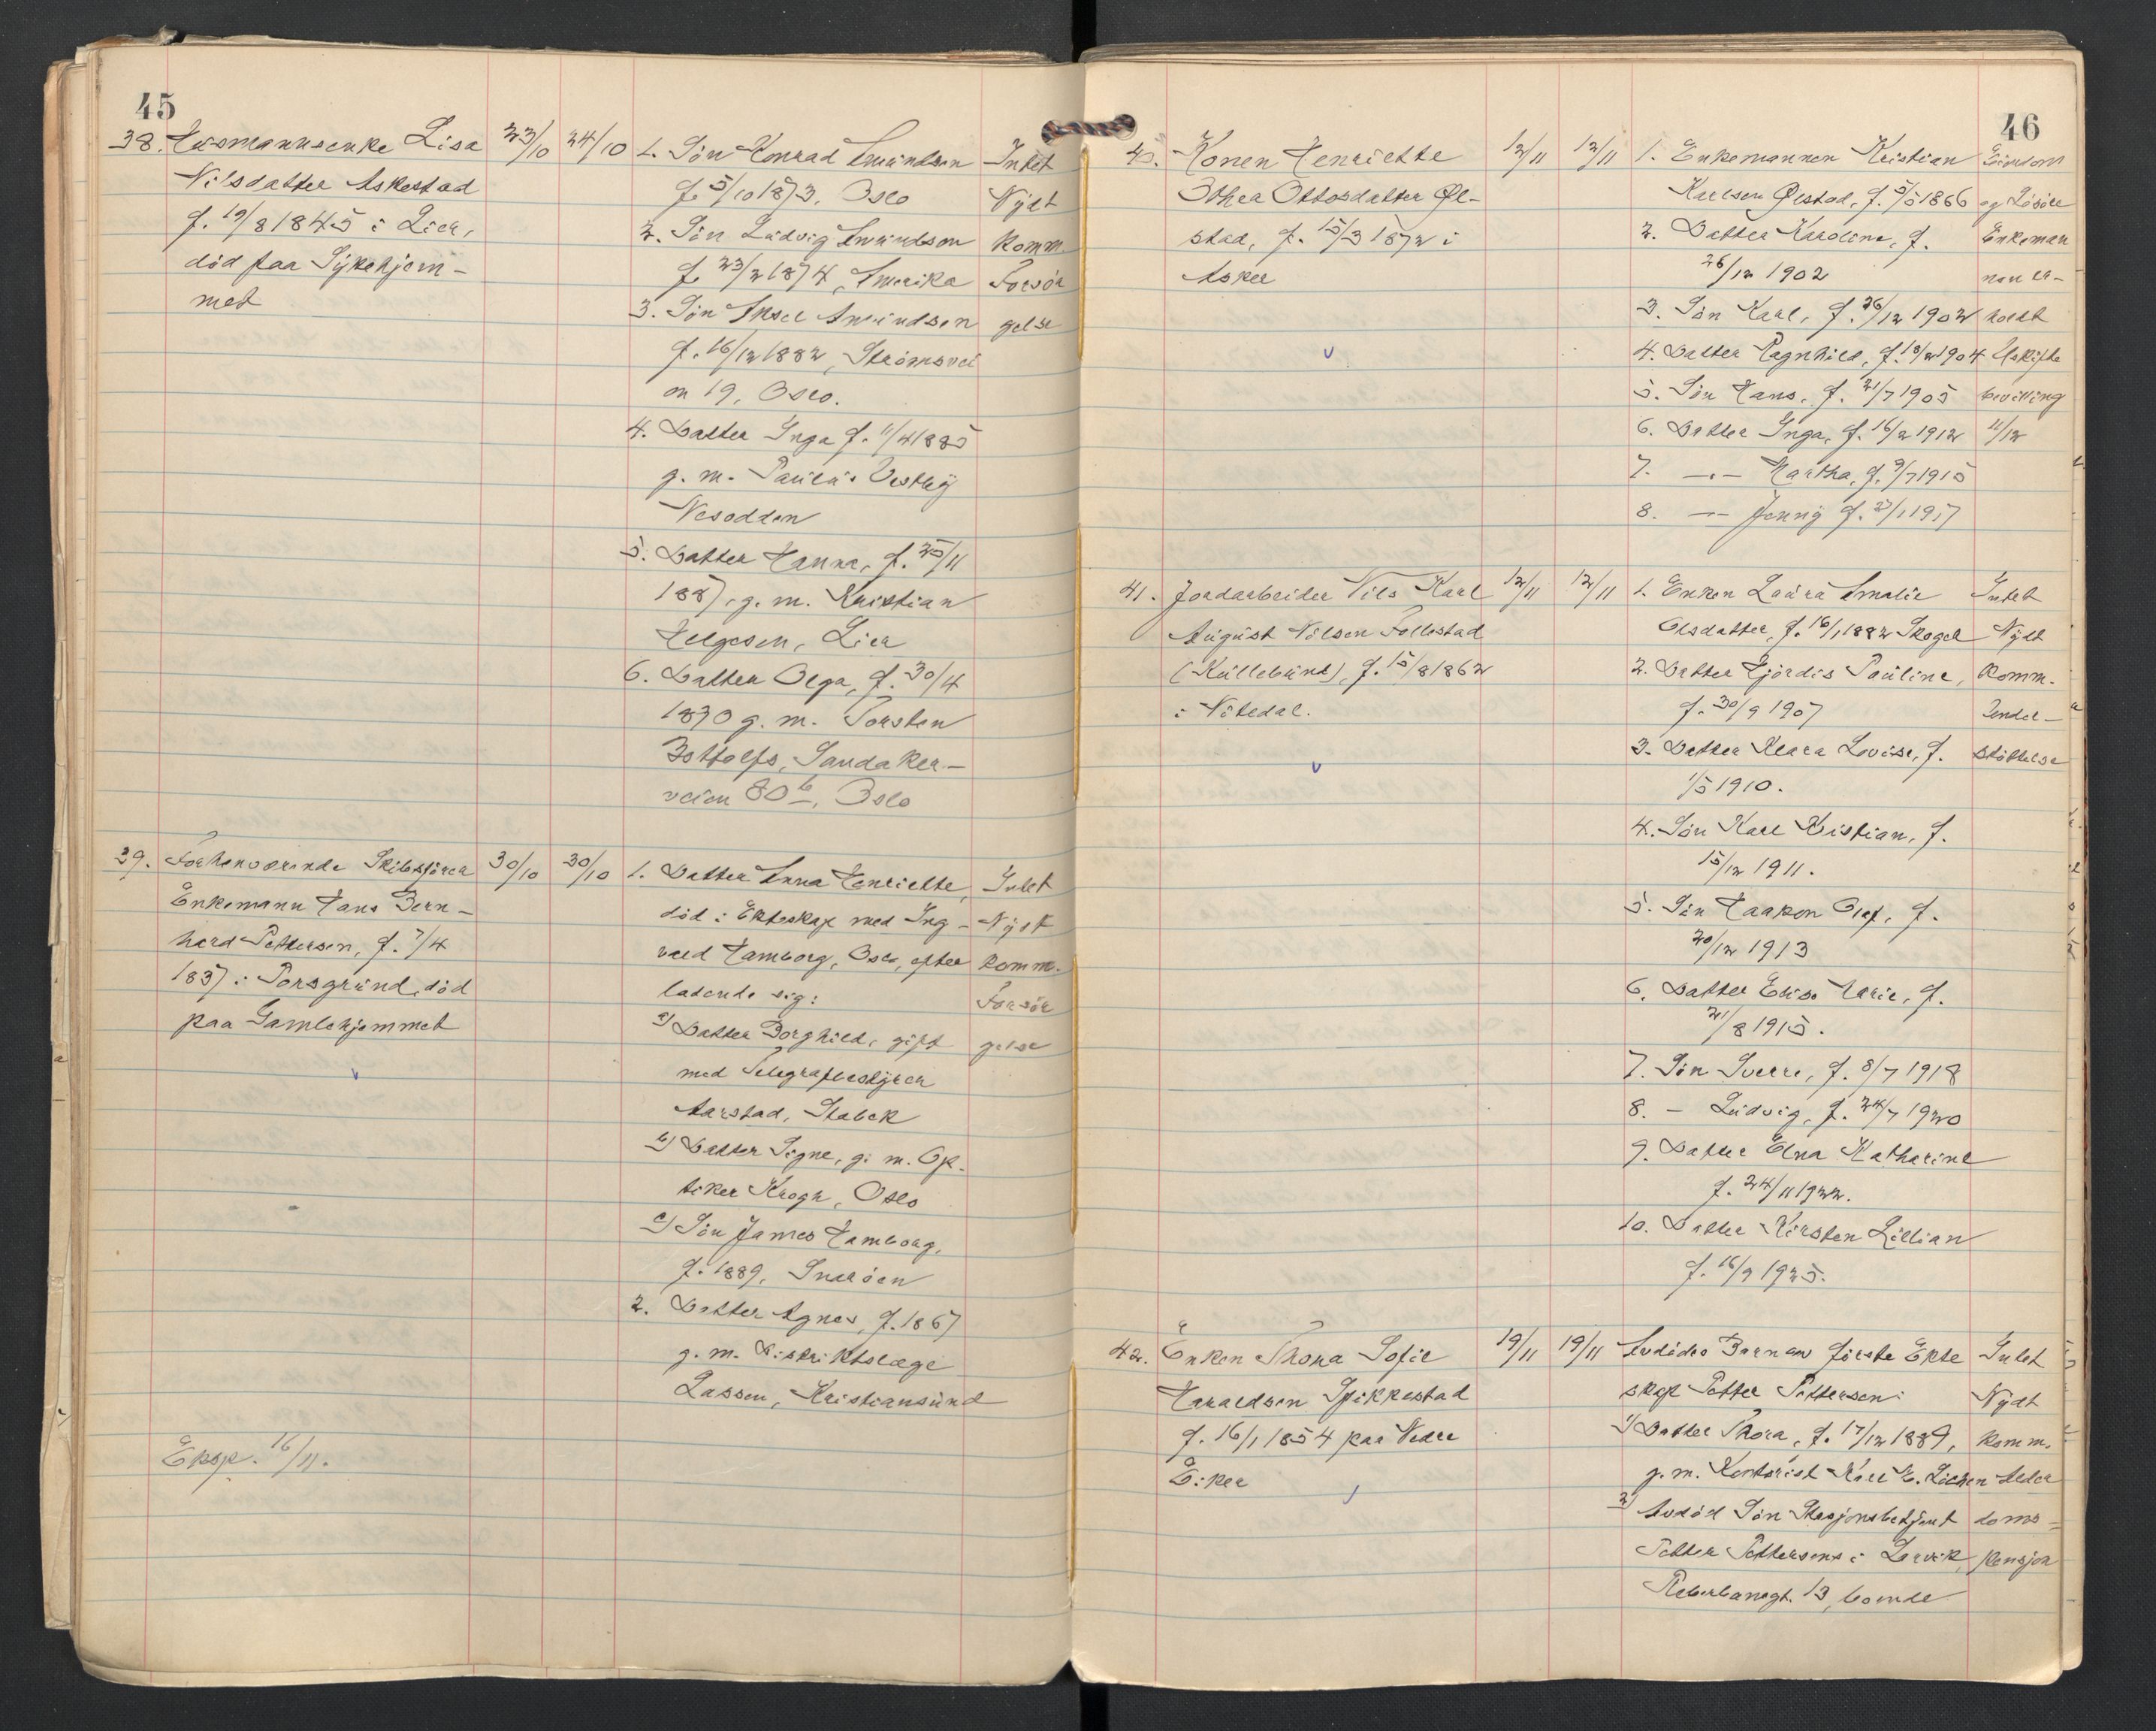 45
38. Husmannsenke Lisa
Nilsdatter Askestad
f. 19/8 1845 i Lier,
död paa Sykehjem-
met
23/10
24/10
1. Sön Konrad Amundsen
f. 5/10 1873, Oslo
2. Sön Ludvig Amundsen
f. 23/2 1874, Amerika
3. Sön Aksel Amundsen
f. 16/12 1882, Strömsvei
en 19, Oslo.
4. Datter Inga f. 11/4 1885
g. m. Paulus Vestby
Nesodden
5. Datter Hanna, f. 25/11
1887, g. m. Kristian
Helgesen, Lier
6. Datter Olga, f. 30/4
1890 g. m. Torsten
Sandaker-
veien 80 b, Oslo
Intet
Nydt
Komm.
Forsör
gelse
39. Forhenværende Skibsförer
Enkemann Hans Bern-
hard Pettersen, f. 7/4
1837 i Porsgrund, död
paa Gamlehjemmet
30/10
30/10
1. Datter Anna Henriette,
död i Ekteskap med Ing-
vald Hamborg, Oslo, efter
ladende sig:
a) Datter Borghild, gift
med Telegrafbestyrer
Aarstad, Stabek
b) Datter Signe, g. m. Op-
tiker Krogh, Oslo
c) Sön James Hamborg,
f. 1889, Snaröen
2. Datter Agnes, f. 1867
g. m. Distriktslæge
Lassen, Kristiansund
Intet
Nydt
Komm.
Forsör
gelse
Eksp. 16/11.
46
40. Konen Henriette
Othea Ottosdatter Øl-
stad, f. 15/3 1872 i
Asker
12/11
12/11
1. Enkemannen Kristian
Karlsen Ølstad, f. 5/5 1866
2. Datter Karoline, f.
26/12 1902
3. Sön Karl, f. 26/12 1902
4. Datter Ragnhild, f. 18/2 1904
5. Sön Hans, f. 21/7 1905
6. Datter Inga, f. 16/2 1912
7. —"— Martha, f. 9/7 1915
8. —"— Jenny f. 27/1 1917
Eiendom
og Lösöre
Enkeman
nen er-
holdt
Uskifte
bevilling
11/12
41. Jordarbeider Nils Karl
August Nilsen Follestad
(Kullebund), f. 15/8 1862
i Nitedal.
12/11
12/11
1. Enken Laura Amalie
Olsdatter, f. 16/1 1882 Skoger
2. Datter Hjördis Pauline,
f. 30/9 1907
3. Datter Klara Lovise, f.
1/5 1910.
4. Sön Karl Kristian, f.
15/12 1911.
5. Sön Haakon Olaf, f.
20/12 1913
6. Datter Edise Marie, f.
21/8 1915.
7. Sön Sverre, f. 8/7 1918
8. — Ludvig, f. 24/7 1920
9. Datter Elna Katharine
f. 24/11 1922.
10. Datter Kirsten Lillian
f. 16/9 1925.
Intet
Nydt
Komm.
Under-
støttelse
42. Enken Thora Sofie
Haraldsen Spikkestad
f. 16/1 1854 paa Nedre
Eiker
19/11
19/11
Avdödes Barn av förste Ekte
skap Petter Pettersen:
1) Datter Thora, f. 17/12 1889,
g. m. Kontorist Karl E.
2) Avdöd Sön Stasjonsbetjent
Petter Pettersens i Larvik,
Reberbanegt. 13, boende
Intet
Nydt
Komm.
Alder
doms-
pensjon